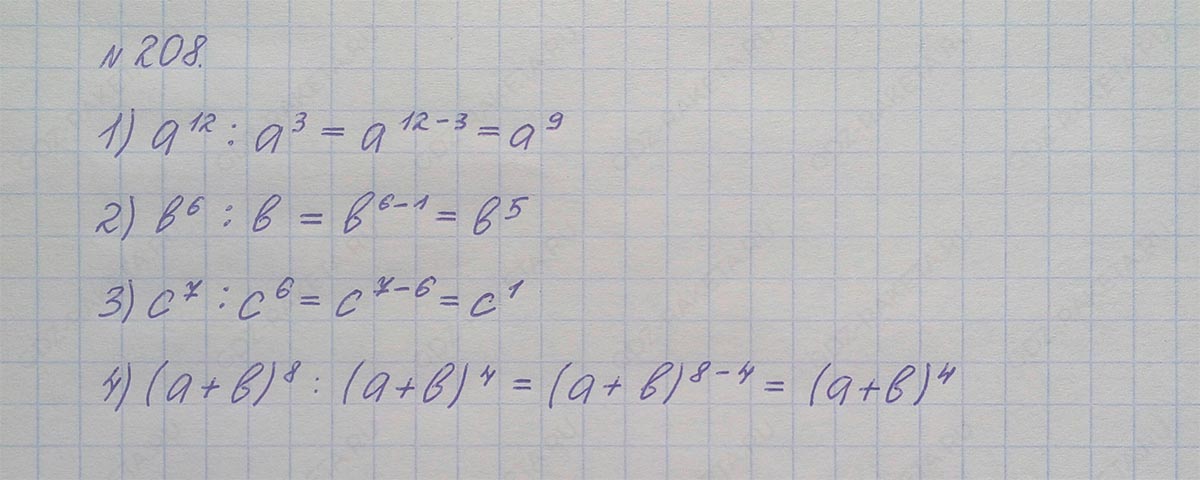 № 208.
1) a¹² : a³ = a¹²⁻³ = a⁹
2) b⁶ : b = b⁶⁻¹ = b⁵
3) c⁷ : c⁶ = c⁷⁻⁶ = c¹
4) (a+b)⁸ : (a+b)⁴ = (a+b)⁸⁻⁴ = (a+b)⁴